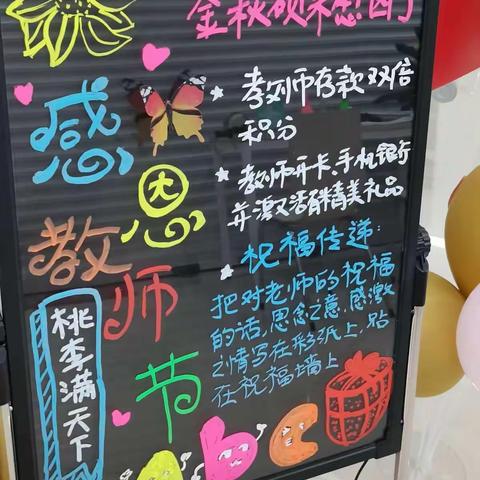 金秋硕果想回了
感恩教师节
教师存款双倍
积分
教师开卡、手机银行
并激活醉精美礼品
祝福传递:
把对老师的祝福
的话,思念之意,感激
之情写在彩纸上,贴
在祝福墙上
桃李满天下
abc